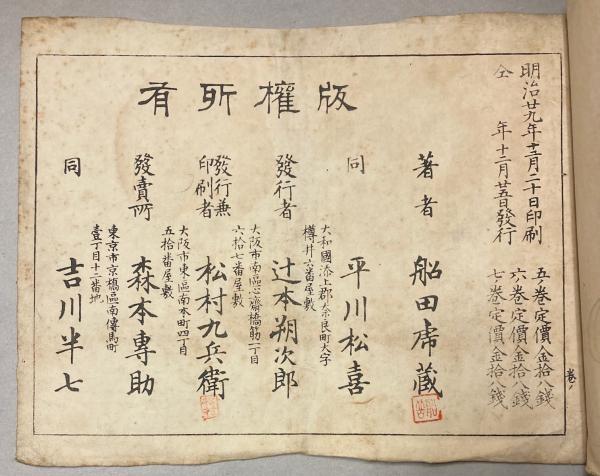 明治廿九年十二月二十日印刷
仝 年十二月廿五日發行
五ノ巻定價金拾八錢
六ノ巻定價金拾八錢
七ノ巻定價金拾八錢
版權所有
著者 船田席蔵
同 平川松喜
大和國添上郡奈良町大字
樽井六番屋敷
發行者 辻本朔次郎
大阪市南區心齋橋筋一丁目
六拾七番屋敷
發行兼
印刷者 松村九兵衛
大阪市東區南本町四丁目
五拾半番屋敷
發賣所 森本專助
東京市京橋區南傳馬町
壹丁目十二番地
同 吉川半七